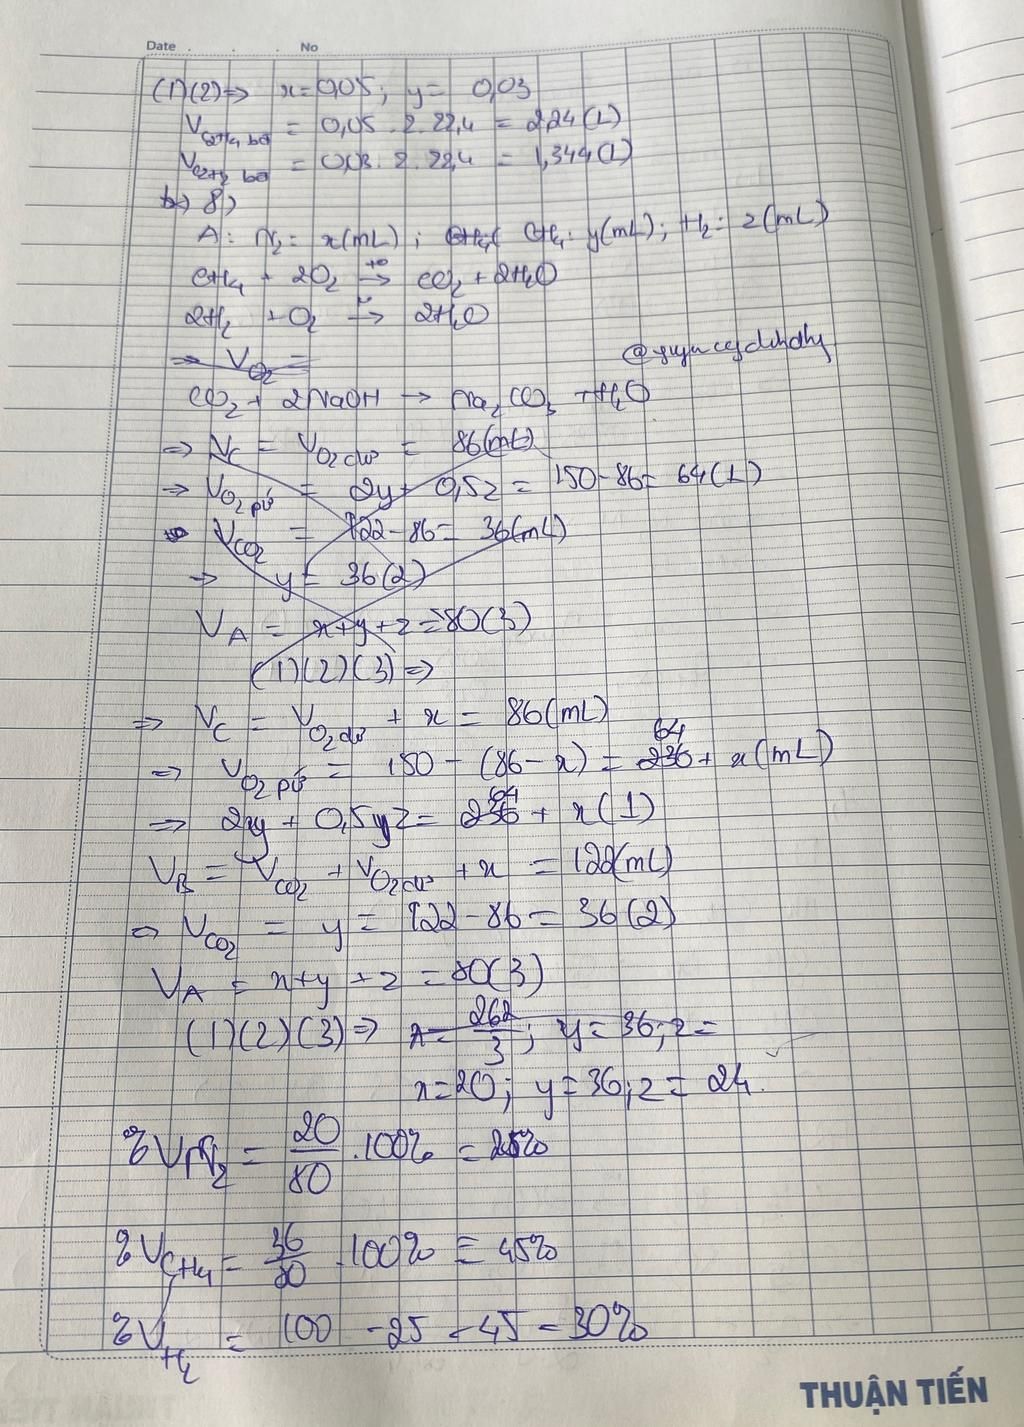 Date . . . No
(1)(2) => x = 0,05 ; y = 0,03
V C2H4 bđ = 0,05 . 2 . 22,4 = 2,24 (L)
V C2H2 bđ = 0,03 . 2 . 22,4 = 1,344 (L)
b) 8)
A : N2 = x (mL) ; CH4 : y (mL) ; H2 : z (mL)
CH4 + 2O2 →(t°) CO2 + 2H2O
2H2 + O2 →(t°) 2H2O
=> V O2 =
CO2 + 2NaOH → Na2CO3 + H2O
=> VC = V O2 dư = 86 (mL)
=> V O2 pứ = 2y + 0,5z = 150 - 86 = 64 (L)
=> V CO2 = 122 - 86 = 36 (mL)
=> y = 36 (2)
VA = x + y + z = 80 (3)
(1)(2)(3) =>
=> VC = V O2 dư + x = 86 (mL)
=> V O2 pứ = 150 - (86 - x) = 236 64 + x (mL)
=> 2y + 0,5yz = 236 64 + x (1)
VB = V CO2 + V O2 dư + x = 122 (mL)
=> V CO2 = y = 122 - 86 = 36 (2)
VA = x + y + z = 80 (3)
(1)(2)(3) => x = 262/3 ; y = 36 ; z =
x = 20 ; y = 36 ; z = 24.
%V N2 = 20/80 . 100% = 25%
%V CH4 = 36/80 . 100% = 45%
%V H2 = 100 - 25 - 45 = 30%
THUẬN TIẾN